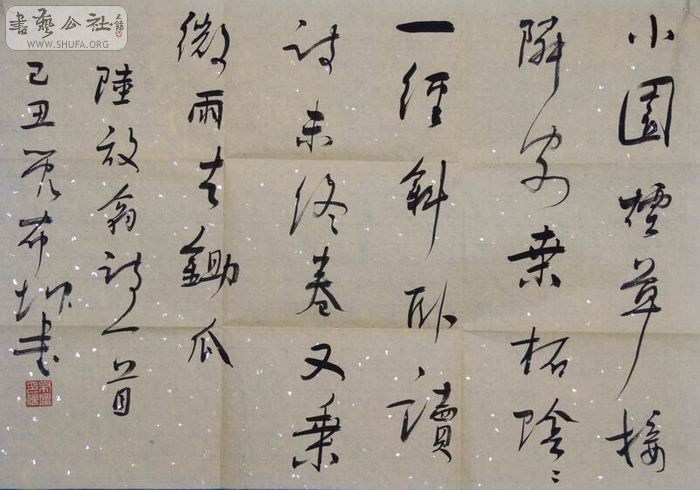 小園煙草接
隣家桑柘陰〻
一徑斜卧讀
詩未終卷又乘
微雨去鋤瓜
陸放翁詩一首
己丑 布 書
書藝公社
WWW.SHUFA.ORG